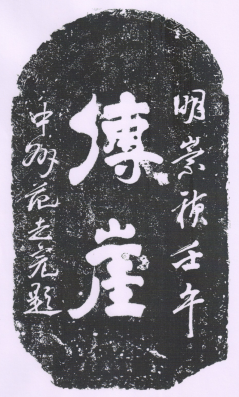 明崇禎壬午
傅崖
中州范志完題